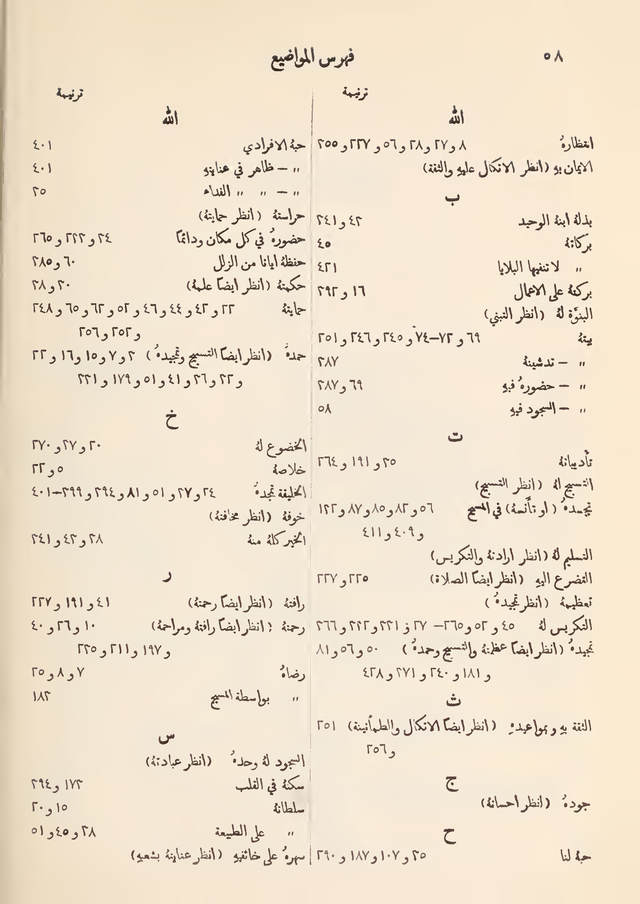 ٥٨
فهرس المواضيع
ترنيمة
الله
انتظارهُ ٨ و٢٧ و٢٨ و٥٦ و٢٢٧ و٢٥٥
الايمان بهِ (انظر الاتكال عليهِ والثقة)
ب
بذلهُ ابنهُ الوحيد ٤٢ و٢٤١
بركاتهُ ٤٥
〃 لا تنفيها البلايا ٤٢١
بركتهُ على الاعمال ١٦ و٢٩٢
البنوَّة لهُ (انظر التبني)
بيتهُ ٦٩ و٧٢–٧٤ و٢٤٥ و٢٤٦ و٢٥١
〃 – تدشينهُ ٢٨٧
〃 – حضورهُ فيهِ ٦٩ و٢٨٧
〃 – السجود فيهِ ٥٨
ت
تأديباتهُ ٢٥ و١٩١ و٢٦٤
التسبيح لهُ (انظر التسبيح)
تجسدهُ (او تأنسهُ) في المسيح ٥٦ و٨٢ و٨٥ و٨٧ و١٢٢
و٤٠٩ و٤١١
التسليم لهُ (انظر ارادتهُ والتكريس)
التضرع اليهِ (انظر ايضًا الصلاة) ٢٢٥ و٢٢٧
تعظيمهُ (انظر تمجيدهُ)
التكريس لهُ ٤٥ و٥٢ و٢٦٥– ٢٧ ز ٢٢١ و٢٢٢ و٢٦٦
تمجيدهُ (انظر ايضًا عظمتهُ والتسبيح وحمدهُ) ٥٠ و٥٦ و٨١
و١٨١ و٢٤٠ و٢٧١ و٤٢٨
ث
الثقة بهِ وبمواعيدهِ (انظر ايضًا الاتكال والطمأنينة) ٢٥١
و٢٥٦
ج
جودهُ (انظر احسانهُ)
ح
حبهُ لنا ٢٥ و١٠٧ و١٨٧ و٢٩٠
ترنيمة
الله
حبهُ الافرادي ٤٠١
〃 – ظاهر في عنايتهِ ٤٠١
〃 – 〃 〃 الفداء ٢٥
حراستهُ (انظر حمايتهُ)
حضورهُ في كل مكان ودائمًا ٢٤ و٢٢٢ و٢٦٥
حفظهُ ايانا من الزلل ٦٠ و٢٨٥
حكمتهُ (انظر ايضًا علمهُ) ٢٠ و٢٨
حمايتهُ ٢٢ و٤٢ و٤٤ و٤٦ و٥٢ و٦٢ و٦٥ و٢٤٨
و٢٥٢ و٢٥٦
حمدهُ (انظر ايضًا التسبيح وتمجيدهُ) ٢ و٧ و١٥ و١٦ و٢٢
و٢٢ و٢٦ و٤١ و٥١ و١٧٩ و٢٢١
خ
الخضوع لهُ ٢٠ و٢٧ و٢٧٠
خلاصهُ ٥ و٢٢
الخليقة تمجدهُ ٢٤ و٢٧ و٥١ و٨١ و٢٩٤ و٢٩٩–٤٠١
خوفهُ (انظر مخافتهُ)
الخير كلهُ منهُ ٢٨ و٤٢ و٢٤١
ر
رأفتهُ (انظر ايضًا رحمتهُ) ٤١ و١٩١ و٢٢٧
رحمتهُ (انظر ايضًا رأفتهُ ومراحمهُ) ١٠ و٢٦ و٤٠
و١٩٧ و٢١١ و٢٢٥
رضاهُ ٧ و٨ و٢٥
〃 بواسطة المسيح ١٨٢
س
السجود لهُ وحدهُ (انظر عبادتهُ)
سكنهُ في القلب ١٧٢ و٢٩٤
سلطانهُ ١٥ و٢٠
〃 على الطبيعة ٢٨ و٤٥ و٥١
سهرهُ على خائفيهِ (انظر عنايتهُ بشعبهِ)